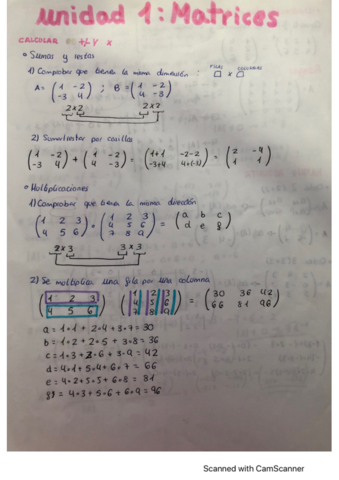 Unidad 1: Matrices
CALCULAR +/- y x
• Sumas y restas
1) Comprobar que tienen la misma dimensión : FILAS □ x COLUMNAS □
A = (1 -2 / -3 4) ; B = (1 -2 / 4 -3)
2x2 2x2
2) Sumar/restar por casillas
(1 -2 / -3 4) + (1 -2 / 4 -3) = (1+1 -2-2 / -3+4 4+(-3)) = (2 -4 / 1 1)
• Multiplicaciones
1) Comprobar que tienen la misma dirección
(1 2 3 / 4 5 6) · (1 2 3 / 4 5 6 / 7 8 9) = (a b c / d e f)
2x3 3x3
2) Se multiplica una fila por una columna
(1 2 3 / 4 5 6) (1 2 3 / 4 5 6 / 7 8 9) = (30 36 42 / 66 81 96)
a = 1·1 + 2·4 + 3·7 = 30
b = 1·2 + 2·5 + 3·8 = 36
c = 1·3 + 2·6 + 3·9 = 42
d = 4·1 + 5·4 + 6·7 = 66
e = 4·2 + 5·5 + 6·8 = 81
= 4·3 + 5·6 + 6·9 = 96
Scanned with CamScanner